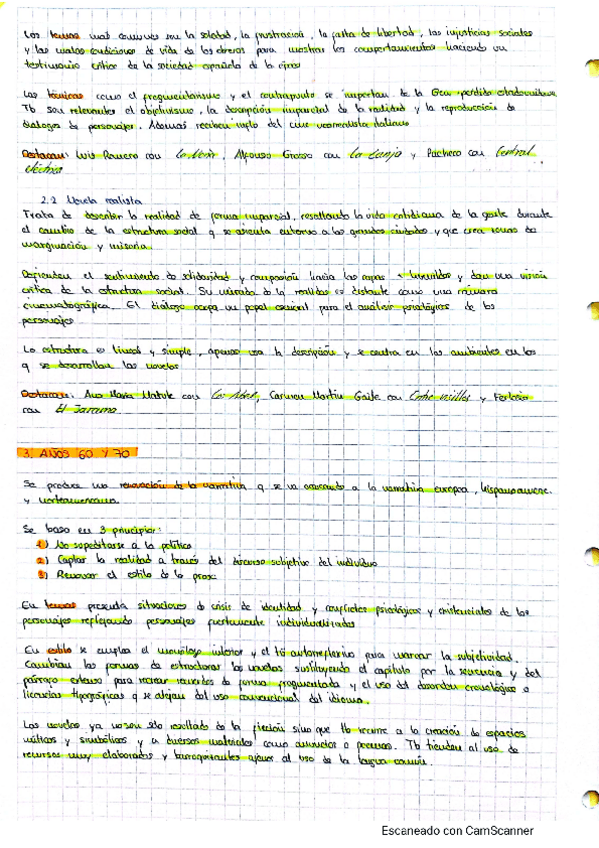 Los temas más comunes son la soledad, la frustración, la falta de libertad, las injusticias sociales
y las malas condiciones de vida de los obreros para mostrar los comportamientos haciendo un
testimonio crítico de la sociedad española de la época
Las técnicas como el fragmentarismo y el contrapunto se importan de la Gen perdida estadounidense
Tb son relevantes el objetivismo, la descripción imparcial de la realidad y la reproducción de
dialogos de personajes. Ademas reciben influ del cine neorrealista italiano
Destacan: Luis Romero con La Noria, Alfonso Grosso con La Zanja y Pacheco con Central
eléctrica
2.2 Novela realista
Trata de describir la realidad de forma imparcial, resaltando la vida cotidiana de la gente durante
el cambio de la estructura social q se asienta entorno a las grandes ciudades y que crea zonas de
marginación y miseria.
Defienden el sentimiento de solidaridad y compasión hacia las capas + humildes y dan una visión
crítica de la estructura social. Su mirada de la realidad es distante como una cámara
cinematográfica. El diálogo ocupa un papel esencial para el análisis psicológico de los
personajes
La estructura es lineal y simple, apenas usa la descripción y se centra en los ambientes en los
q se desarrollan las novelas
Destacan: Ana María Matute con Los Abel, Carmen Martín Gaite con Entre visillos y Ferlosio
con El Jarama
3. AÑOS 60 Y 70
Se produce una renovación de la narrativa q se va acercando a la narrativa europea, hispanoameric.
y norteamericana.
Se basa en 3 principios:
1) No supeditarse a la político
2) Captar la realidad a través del discurso subjetivo del individuo
3) Renovar el estilo de la prosa
En temas presenta situaciones de crisis de identidad y conflictos psicológicos y existenciales de los
personajes reflejando personajes fuertemente individualizados
En estilo se emplea el monólogo interior y el tú autorreflexivo para marcar la subjetividad.
Cambian las formas de estructurar las novelas sustituyendo el capítulo por la secuencia y del
párrafo extenso para recrear recuerdos de forma fragmentada y el uso del desorden cronológico o
licencias tipográficas q se alejan del uso convencional del idioma.
Las novelas ya no son sólo resultado de la ficción sino que tb recurre a la creación de espacios
míticos y simbólicos y a diversos materiales como anuncios o poemas. Tb tienden al uso de
recursos muy elaborados y barroquizantes ajenos al uso de la lengua común.
Escaneado con CamScanner